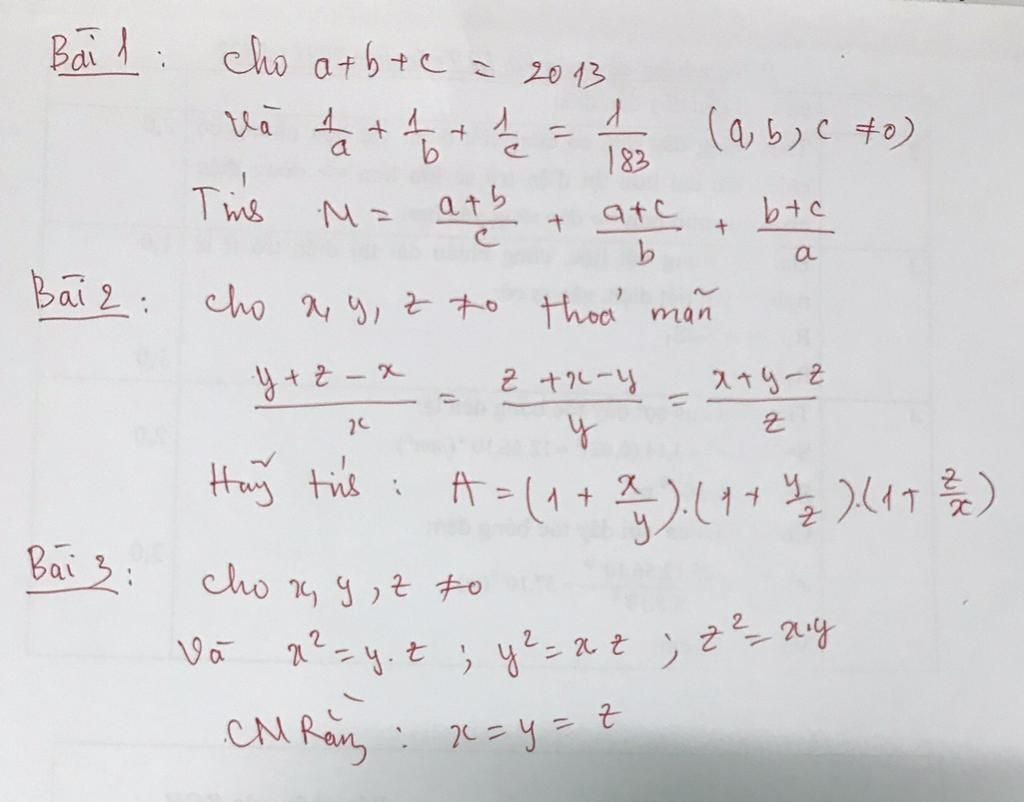 Bài 1 : Cho a+b+c = 2013
Và 1/a + 1/b + 1/c = 1/183 (a, b, c ≠0)
Tính M = (a+b)/c + (a+c)/b + (b+c)/a
Bài 2 : Cho x, y, z ≠0 thoả mãn
(y+z-x)/x = (z+x-y)/y = (x+y-z)/z
Hãy tính : A = (1 + x/y).(1 + y/z).(1+ z/x)
Bài 3 : Cho x, y, z ≠0
Và x² = y.z ; y² = x.z ; z² = x.y
CM Rằng : x = y = z